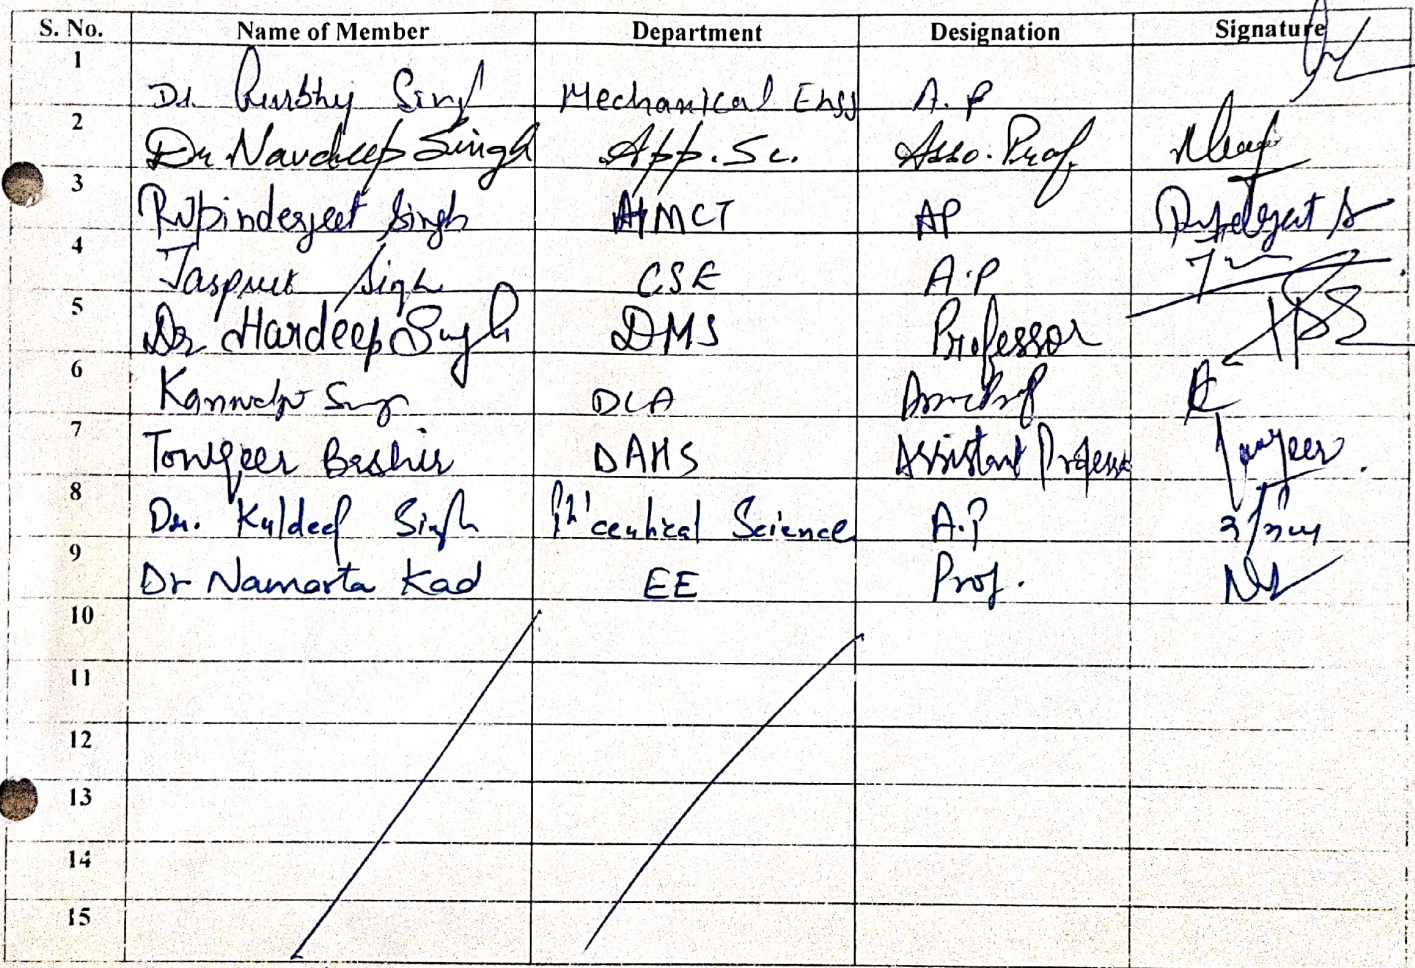 S. No. Name of Member Department Designation Signature
1 Dr. Gurbhej Singh Mechanical Engg A.P
2 Dr. Navdeep Singh App. Sc. Asso. Prof.
3 Rupinderjeet Singh AHMCT AP
4 Jaspreet Singh CSE A.P
5 Dr Hardeep Singh DMS Professor
6 Singh DCA
7 Towqeer Bashir DAHS Assistant Professor Towqeer
8 Dr. Kuldeep Singh Ph'ceutical Science A.P
9 Dr Namarta Kad EE Prof.
10
11
12
13
14
15